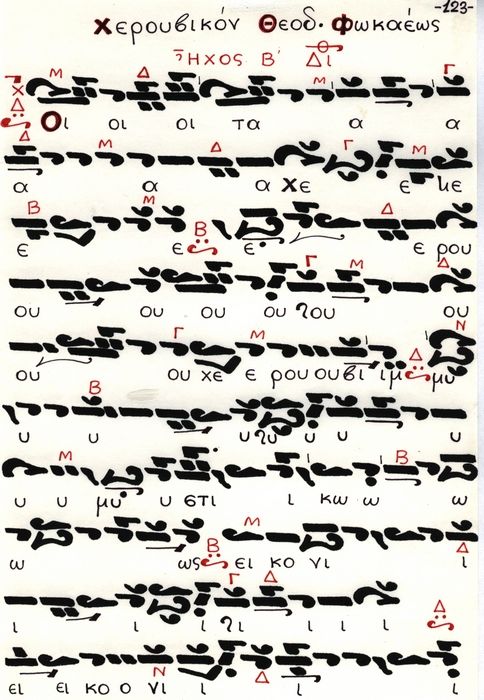 -123-
Χερουβικόν Θεοδ. Φωκαέως
Ἦχος Β΄ Δι
Μ Δ Μ Γ
Οι οι οι τα α α
Δ Μ Δ Γ Μ
α α α Χε ε κε
Β Μ Β Δ
ε ε ε ε ρου
Γ Μ Δ
ου ου ου ου ου ου
Γ Μ Δ Ν
ου ου χε ε ρου ουβι ιμ μυ
Β
υ υ υ υ υ υ υ
Μ Β
υ υ μυ υ στι ι κω ω ω
Β Μ Δ
ω ως ει κο νι ι
Γ Δ Δ
ι ι ι ι ι ι ι
Ν Δ
ει ει κο ο νι ι ι ι